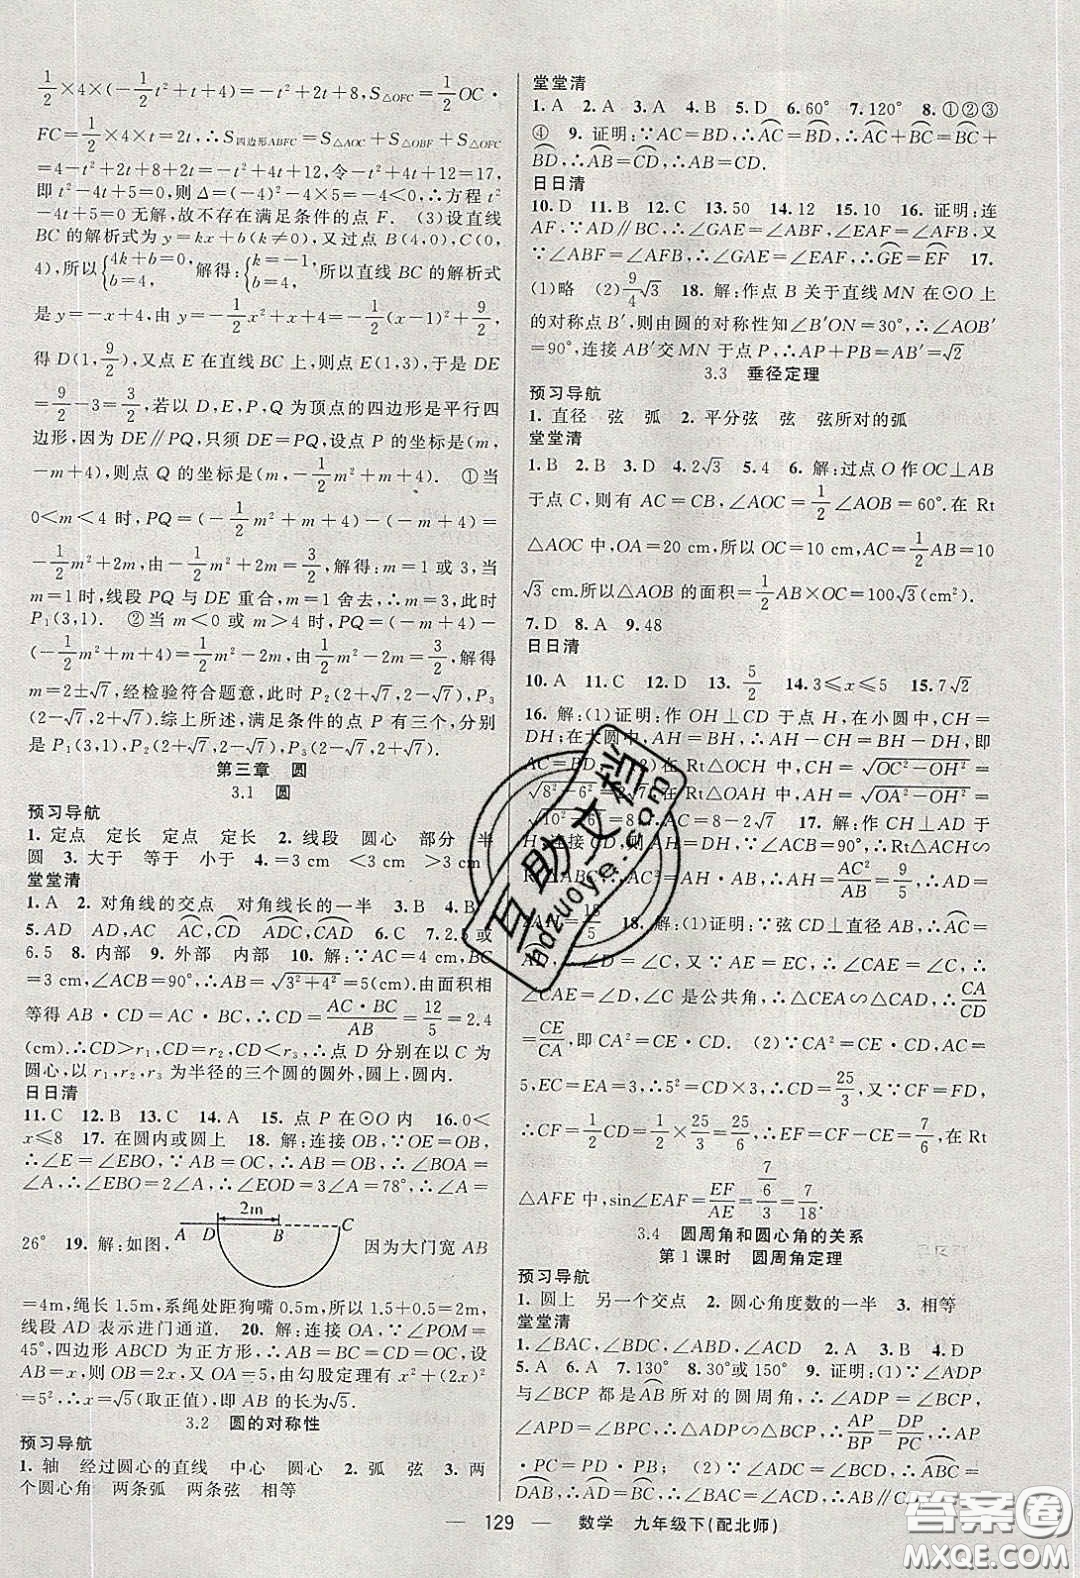 1/2×4×(-1/2t²+t+4)=-t²+2t+8,S△OFC=1/2OC·
FC=1/2×4×t=2t,∴S四边形ABFC=S△AOC+S△OBF+S△OFC
=4-t²+2t+8+2t=-t²+4t+12,令-t²+4t+12=17,
即t²-4t+5=0,则Δ=(-4)²-4×5=-4<0,∴方程t²
-4t+5=0无解,故不存在满足条件的点F. (3)设直线
BC的解析式为y=kx+b(k≠0),又过点B(4,0),C(0,
4),所以{4k+b=0,b=4, 解得:{k=-1,b=4, 所以直线BC的解析式
是y=-x+4,由y=-1/2x²+x+4=-1/2(x-1)²+9/2,
得D(1,9/2),又点E在直线BC上,则点E(1,3),于是DE=
9/2-3=3/2,若以D,E,P,Q为顶点的四边形是平行四
边形,因为DE∥PQ,只须DE=PQ,设点P的坐标是(m,
-m+4),则点Q的坐标是(m,-1/2m²+m+4). ①当
0<m<4时,PQ=(-1/2m²+m+4)-(-m+4)=
-1/2m²+2m,由-1/2m²+2m=3/2,解得:m=1或3.当
m=1时,线段PQ与DE重合,m=1舍去,∴m=3,此时
P₁(3,1). ②当m<0或m>4时,PQ=(-m+4)-
(-1/2m²+m+4)=1/2m²-2m,由1/2m²-2m=3/2,解得
m=2±√7,经检验符合题意,此时P₂(2+√7,2-√7),P₃
(2-√7,2+√7).综上所述,满足条件的点P有三个,分别
是P₁(3,1),P₂(2+√7,2-√7),P₃(2-√7,2+√7).
第三章 圆
3.1 圆
预习导航
1.定点 定长 定点 定长 2.线段 圆心 部分 半
圆 3.大于 等于 小于 4.=3 cm <3 cm >3 cm
堂堂清
1.A 2.对角线的交点 对角线长的一半 3.B 4.B
5.AD AD,AC AC,CD ADC,CAD 6.C 7.2.5或
6.5 8.内部 9.外部 内部 10.解:∵AC=4 cm,BC
=3 cm,∠ACB=90°,∴AB=√3²+4²=5(cm).由面积相
等得AB·CD=AC·BC,∴CD=AC·BC/AB=12/5=2.4
(cm).∴CD>r₁,CD=r₂,CD<r₃,∴点D分别在以C为
圆心,以r₁,r₂,r₃为半径的三个圆的圆外,圆上,圆内.
日日清
11.C 12.B 13.C 14.A 15.点P在⊙O内 16.0<
x≤8 17.在圆内或圆上 18.解:连接OB,∵OE=OB,
∴∠E=∠EBO,∵AB=OC,∴AB=OB,∴∠BOA=
∠A,∴∠EBO=2∠A,∴∠EOD=3∠A=78°,∴∠A=
2m
A D B C
26° 19.解:如图, 因为大门宽AB
=4m,绳长1.5m,系绳处距狗嘴0.5m,所以1.5+0.5=2m,
线段AD表示进门通道. 20.解:连接OA,∵∠POM=
45°,四边形ABCD为正方形,∴AB=BC=CD=OC,设
AB=x,则OB=2x,又OA=5,由勾股定理有x²+(2x)²
=5²,∴x=√5(取正值),即AB的长为√5.
3.2 圆的对称性
预习导航
1.轴 经过圆心的直线 中心 圆心 2.弧 弦 3.两
个圆心角 两条弧 两条弦 相等
堂堂清
1.A 2.A 3.A 4.B 5.D 6.60° 7.120° 8.①②③
④ 9.证明:∵AC=BD,∴AC=BD,∴AC+BC=BC+
BD,∴AB=CD,∴AB=CD.
日日清
10.D 11.B 12.C 13.50 14.12 15.10 16.证明:连
AF,∵AD∥BC,∴∠GAE=∠ABF,∠EAF=∠AFB,又
∵∠ABF=∠AFB,∴∠GAE=∠EAF,∴GE=EF 17.
(1)略 (2)9/4√3 18.解:作点B关于直线MN在⊙O上
的对称点B′,则由圆的对称性知∠B′ON=30°,∴∠AOB′
=90°,连接AB′交MN于点P,∴AP+PB=AB′=√2
3.3 垂径定理
预习导航
1.直径 弦 弧 2.平分弦 弦 弦所对的弧
堂堂清
1.B 2.B 3.D 4.2√3 5.4 6.解:过点O作OC⊥AB
于点C,则有AC=CB,∠AOC=1/2∠AOB=60°.在Rt
△AOC中,OA=20 cm,所以OC=10 cm,AC=1/2AB=10
√3 cm.所以△AOB的面积=1/2AB×OC=100√3(cm²).
7.D 8.A 9.48
日日清
10.A 11.C 12.D 13.5/2 14.3≤x≤5 15.7√2
16.解:(1)证明:作OH⊥CD于点H,在小圆中,CH=
DH;在大圆中,AH=BH,∴AH-CH=BH-DH,即
在Rt△OCH中,CH=√OC²-OH²=
√8²-6²=2√7,在Rt△OAH中,AH=√OA²-OH²=
√10²-6²=8,∴AC=8-2√7 17.解:作CH⊥AD于
H,连接CD,则∠ACB=90°,∴Rt△ACH∽Rt△
ABC,∴AC²=AH·AB,∴AH=AC²/AB=9/5,∴AD=
18.(1)证明:∵弦CD⊥直径AB,∴AC=
∠AD,∴∠ACD=∠C,又∵AE=EC,∴∠CAE=∠C,∴
∠CAE=∠D,∠C是公共角,∴△CEA∽△CAD,∴CA/CD
=CE/CA,即CA²=CE·CD. (2)∵CA²=CE·CD,AC=
5,EC=EA=3,∴5²=CD×3,∴CD=25/3,又∵CF=FD,
∴CF=1/2CD=1/2×25/3=25/6,∴EF=CF-CE=7/6,在Rt
△AFE中,sin∠EAF=EF/AE=7/6/3=7/18.
3.4 圆周角和圆心角的关系
第1课时 圆周角定理
预习导航
1.圆上 另一个交点 2.圆心角度数的一半 3.相等
堂堂清
1.∠BAC,∠BDC ∠ABD,∠ACD 2.A 3.B 4.D
5.A 6.A 7.130° 8.30°或150° 9.证明:(1)∵∠ADP
与∠BCP都是AB所对的圆周角,∴∠ADP=∠BCP,
∵∠APD=∠BPC,∴△APD∽△BPC,∴AP/BP=DP/PC,∴AP
·PC=PD·PB; (2)∵∠ADC=∠BCD,∴ABC=
DAB,∴AD=BC,∴AD=BC
129 数学 九年级下(配北师)
互助文档
hdzuoye.com
答案圈
MXQE.COM